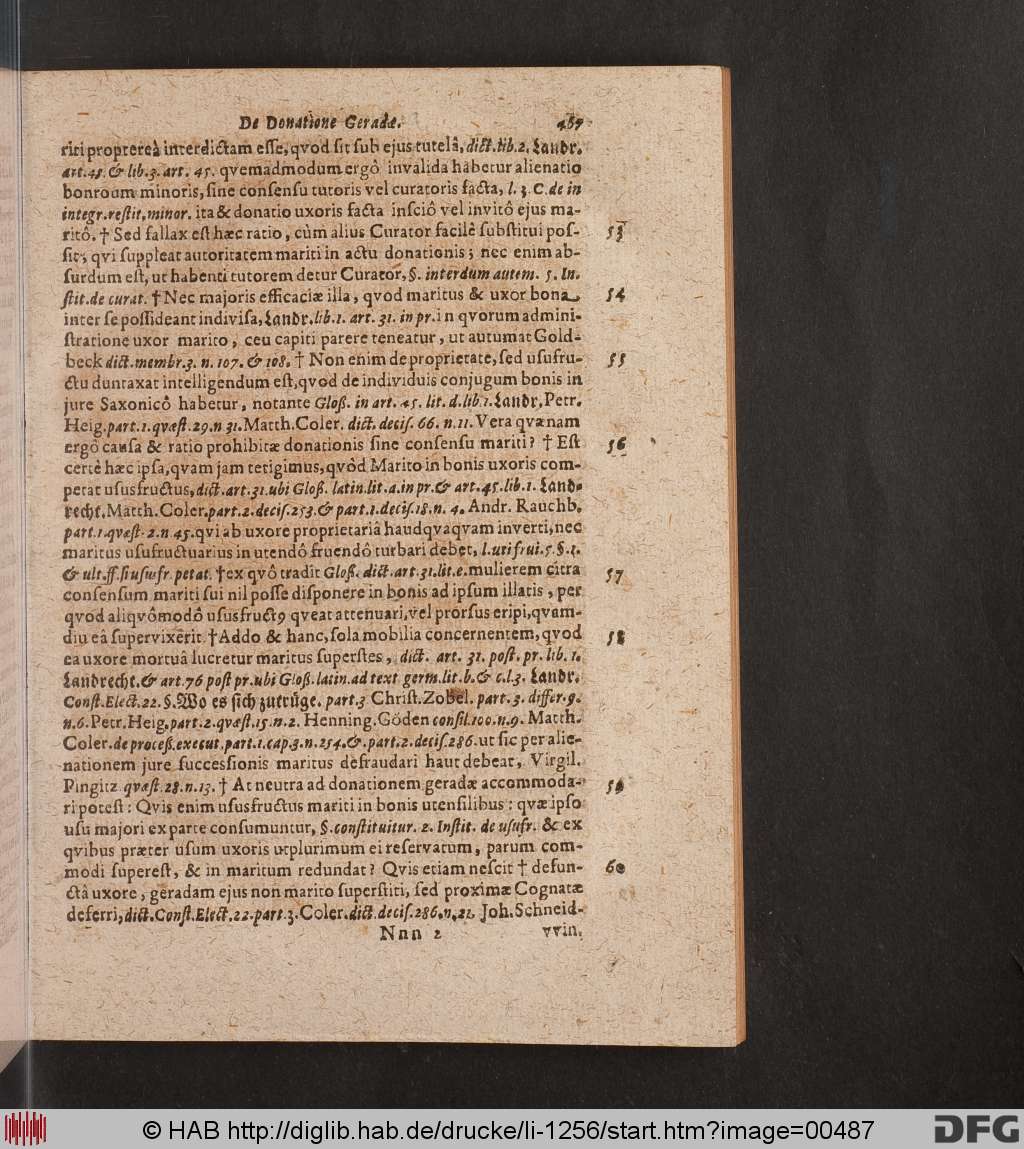 De Donatione Geradæ. 467
riti proptereà interdictam eſſe, qvod ſit ſub ejus tutelâ, dict. lib. 2. Landr.
art. 45. & lib. 3. art. 45. qvemadmodum ergò invalida habetur alienatio
bonroum minoris, ſine conſenſu tutoris vel curatoris facta, l. 3. C. de in
integr. reſtit. minor. ita & donatio uxoris facta inſciô vel invitô ejus ma-
ritô. † Sed fallax eſt hæc ratio, cùm alius Curator facilè ſubſtitui poſ- 53
ſit; qvi ſuppleat autoritatem mariti in actu donationis; nec enim ab-
ſurdum eſt, ut habenti tutorem detur Curator, §. interdum autem. 5. In-
ſtit. de curat. † Nec majoris efficaciæ illa, qvod maritus & uxor bona 54
inter ſe poſſideant indiviſa, Landr. lib. 1. art. 31. in pr. in qvorum admini-
ſtratione uxor marito, ceu capiti parere teneatur, ut autumat Gold-
beck dict. membr. 3. n. 107. & 108. † Non enim de proprietate, ſed uſufru- 55
ctu duntaxat intelligendum eſt, qvod de individuis conjugum bonis in
jure Saxonicô habetur, notante Gloß. in art. 45. lit. d. lib. 1. Landr. Petr.
Heig. part. 1. qvæſt. 29. n 31. Matth. Coler. dict. deciſ. 66. n. 11. Vera qvænam
ergò cauſa & ratio prohibitæ donationis ſine conſenſu mariti? † Eſt 56
certè hæc ipſa, qvam jam tetigimus, qvòd Marito in bonis uxoris com-
petat uſusfructus, dict. art. 31. ubi Gloß. latin. lit. a. in pr. & art. 45. lib. 1. Land-
recht. Matth. Coler. part. 2. deciſ. 253. & part. 1. deciſ. 18. n. 4. Andr. Rauchb.
part. 1. qvæſt. 2. n 45. qvi ab uxore proprietariâ haudqvaqvam inverti, nec
maritus uſufructuarius in utendô fruendô turbari debet, l. uti frui. 5. §. 1.
& ult. ff. ſi uſusfr. petat. † ex qvô tradit Gloß. dict. art. 31. lit. e. mulierem citra 57
conſenſum mariti ſui nil poſſe diſponere in bonis ad ipſum illatis, per
qvod aliqvômodô uſusfructꝰ qveat attenuari, vel prorſus eripi, qvam-
diu eâ ſupervixerit. † Addo & hanc, ſola mobilia concernentem, qvod 58
ea uxore mortuâ lucretur maritus ſuperſtes, dict. art. 31. poſt. pr. lib. 1.
Landrecht. & art. 76 poſt pr. ubi Gloß. latin. ad text germ. lit. b. & c. l. 3. Landr.
Conſt. Elect. 22. §. Wo es ſich zutrüge. part. 3 Chriſt. Zobel. part. 3. differ. 9.
n. 6. Petr. Heig. part. 2. qvæſt. 15. n. 2. Henning. Göden conſil. 100. n. 9. Matth.
Coler. de proceß. execut. part. 1. cap. 3. n. 254. & part. 2. deciſ. 286. ut ſic per alie-
nationem jure ſucceſſionis maritus defraudari haut debeat, Virgil.
Pingitz qvæſt. 28. n. 13. † At neutra ad donationem geradæ accommoda- 59
ri poteſt: Qvis enim uſusfructus mariti in bonis utenſilibus: qvæ ipſo
uſu majori ex parte conſumuntur, §. conſtituitur. 2. Inſtit. de uſufr. & ex
qvibus præter uſum uxoris utplurimum ei reſervatum, parum com-
modi ſupereſt, & in maritum redundat? Qvis etiam neſcit † defun- 60
ctâ uxore, geradam ejus non marito ſuperſtiti, ſed proximæ Cognatæ
deferri, dict. Conſt. Elect. 22. part. 3. Coler. dict. deciſ. 286. n. 22. Joh. Schneid-
Nnn 2 vvin.
© HAB http://diglib.hab.de/drucke/li-1256/start.htm?image=00487
DFG